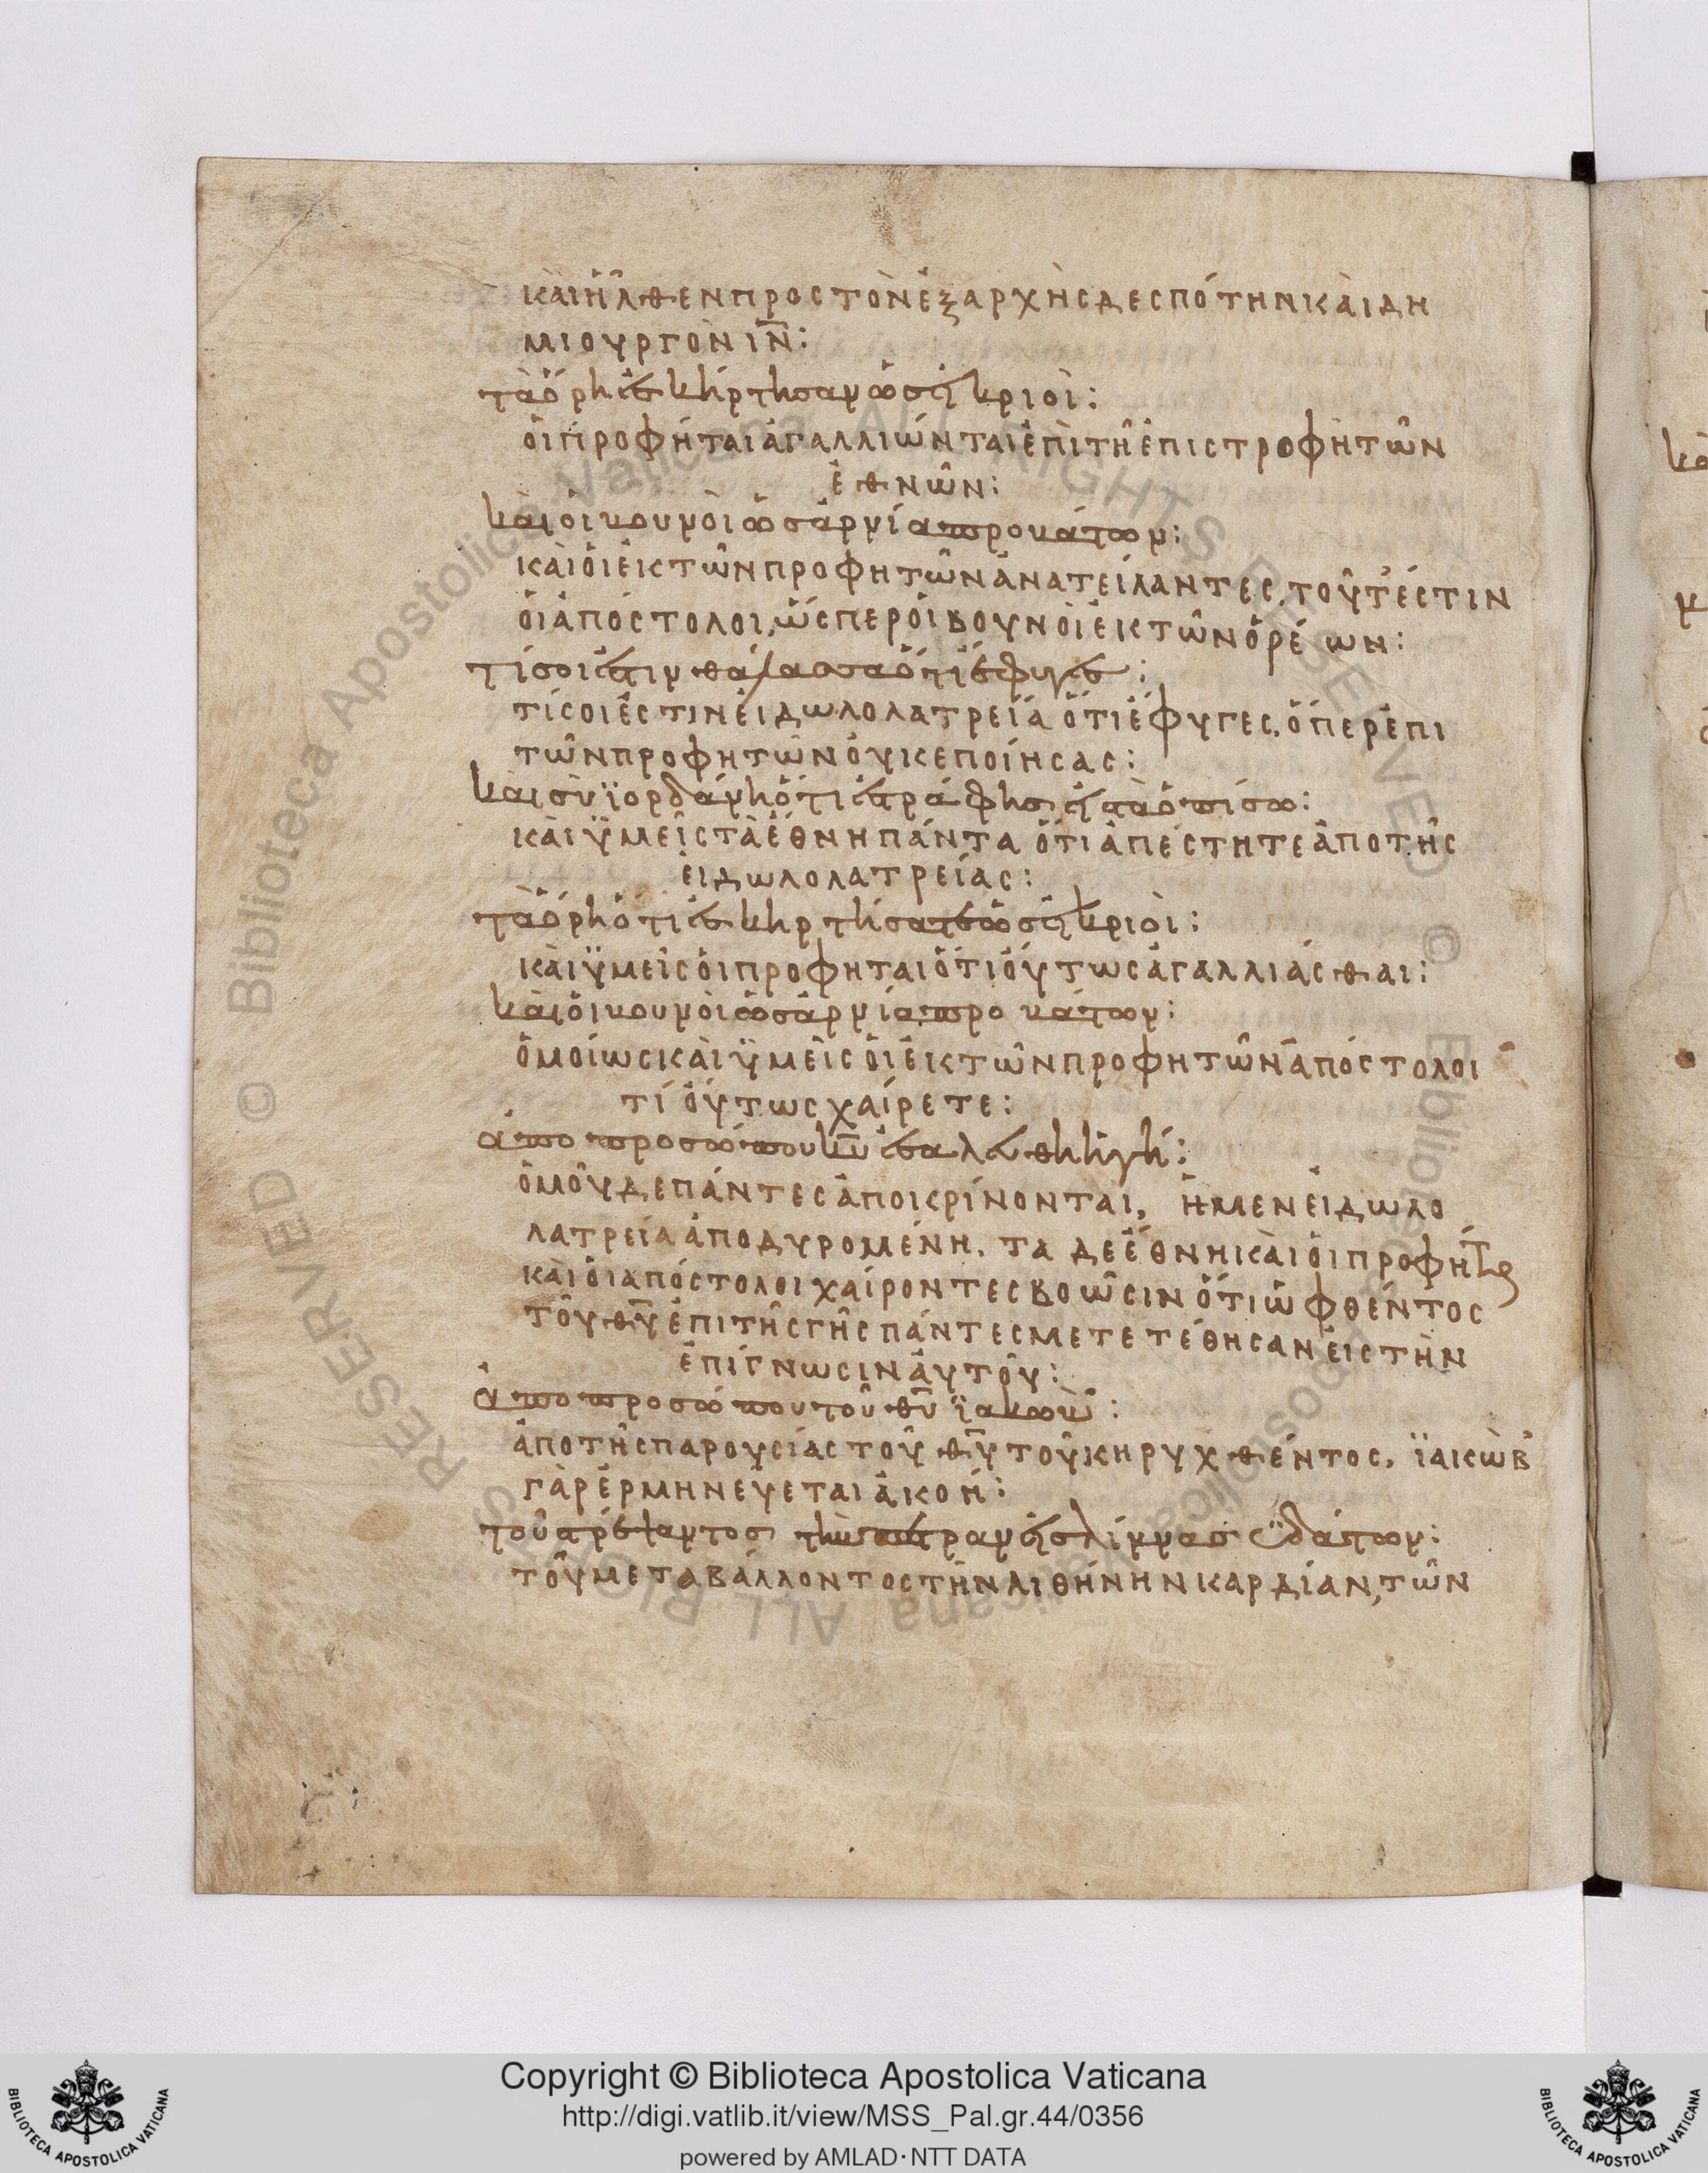 κὰι ἦλθεν προς τὸν ἐξαρχὴς δεσπότην κὰι δη
μιουργὸν ιν̅:
τὰ ὄρη ἐσκήρτησαν ὡσεὶ κριοὶ:
ὁι προφήται ἀγαλλιώνται ἐπὶ τῆ ἐπιστροφὴ τῶν
ἐθνῶν:
κὰι οἱ βουνὸι ὡσ ἀρνία προβάτων:
κὰι ὁι ἐκ τῶν προφητῶν ἀνατείλαντες, τοῦτ' ἐστιν
ὁι ἀπόστολοι, ὥσπερ ὁι βουνὸι ἐκ τῶν ὀρέων:
τί σοι ἐστιν θάλασσα ὅτι ἔφυγες:
τί σοι ἐστιν ἐιδωλολατρεία ὅτι ἔφυγες, ὅπερ ἐπι
τῶν προφητῶν ὀυκ εποίησας:
κὰι σὺ ϊορδάνη ὅτι ἐστράφησ εἰστὰ ὀπίσω:
κὰι ὑμεῖς τὰ ἔθνη πάντα ὅτι ἀπέστητε ἀπο τῆς
ἐιδωλολατρείας:
τὰ ὄρη ὅτι ἐσκηρτήσατε ὡσεὶ κριοὶ:
κὰι ὑμεῖς ὁι προφηται ὅτι ὅυτως ἀγαλλιάσθαι:
κὰι ὁι βουνὸι ὡσ ἀρνία προβάτων:
ὁμοίως κὰι ὑμεὶς ὁι ἐκ τῶν προφητῶν ἀπόστολοι
τί ὅυτως χαίρετε:
ἀπο προσώπου κ̅υ̅ ἐσαλεύθη ἡ γή:
ὁμοῦ δε πάντες ἀποκρίνονται, ἡ μεν ἐιδωλο
λατρεία ἀποδυρομένη. τα δε ἔθνη κὰι ὁι προφήτ(αι)
κὰι ὁι απόστολοι χαίροντες βοῶσιν ὅτι ὠφθέντος
τοῦ θ̅υ̅ ἐπι τῆς γῆς πάντες μετετέθησαν ἐις τὴν
ἐπίγνωσιν ἀυτοῦ:
ἀπο προσώπου τοῦ θ̅υ̅ ϊακώβ:
ἀπο τῆς παρουσίας τοῦ θ̅υ̅ τοῦ κηρυχθέντος, ϊακὼβ
γὰρ ἑρμηνεύεται ἀκοή:
τοῦ στρέψαντοσ τὴν πέτραν εἰσ λίμνασ ὑδάτων:
τοῦ μεταβάλλοντος τὴν λιθήνην καρδίαν, τῶν
Copyright © Biblioteca Apostolica Vaticana
http://digi.vatlib.it/view/MSS_Pal.gr.44/0356
powered by AMLAD·NTT DATA
BIBLIOTECA APOSTOLICA VATICANA
BIBLIOTECA APOSTOLICA VATICANA